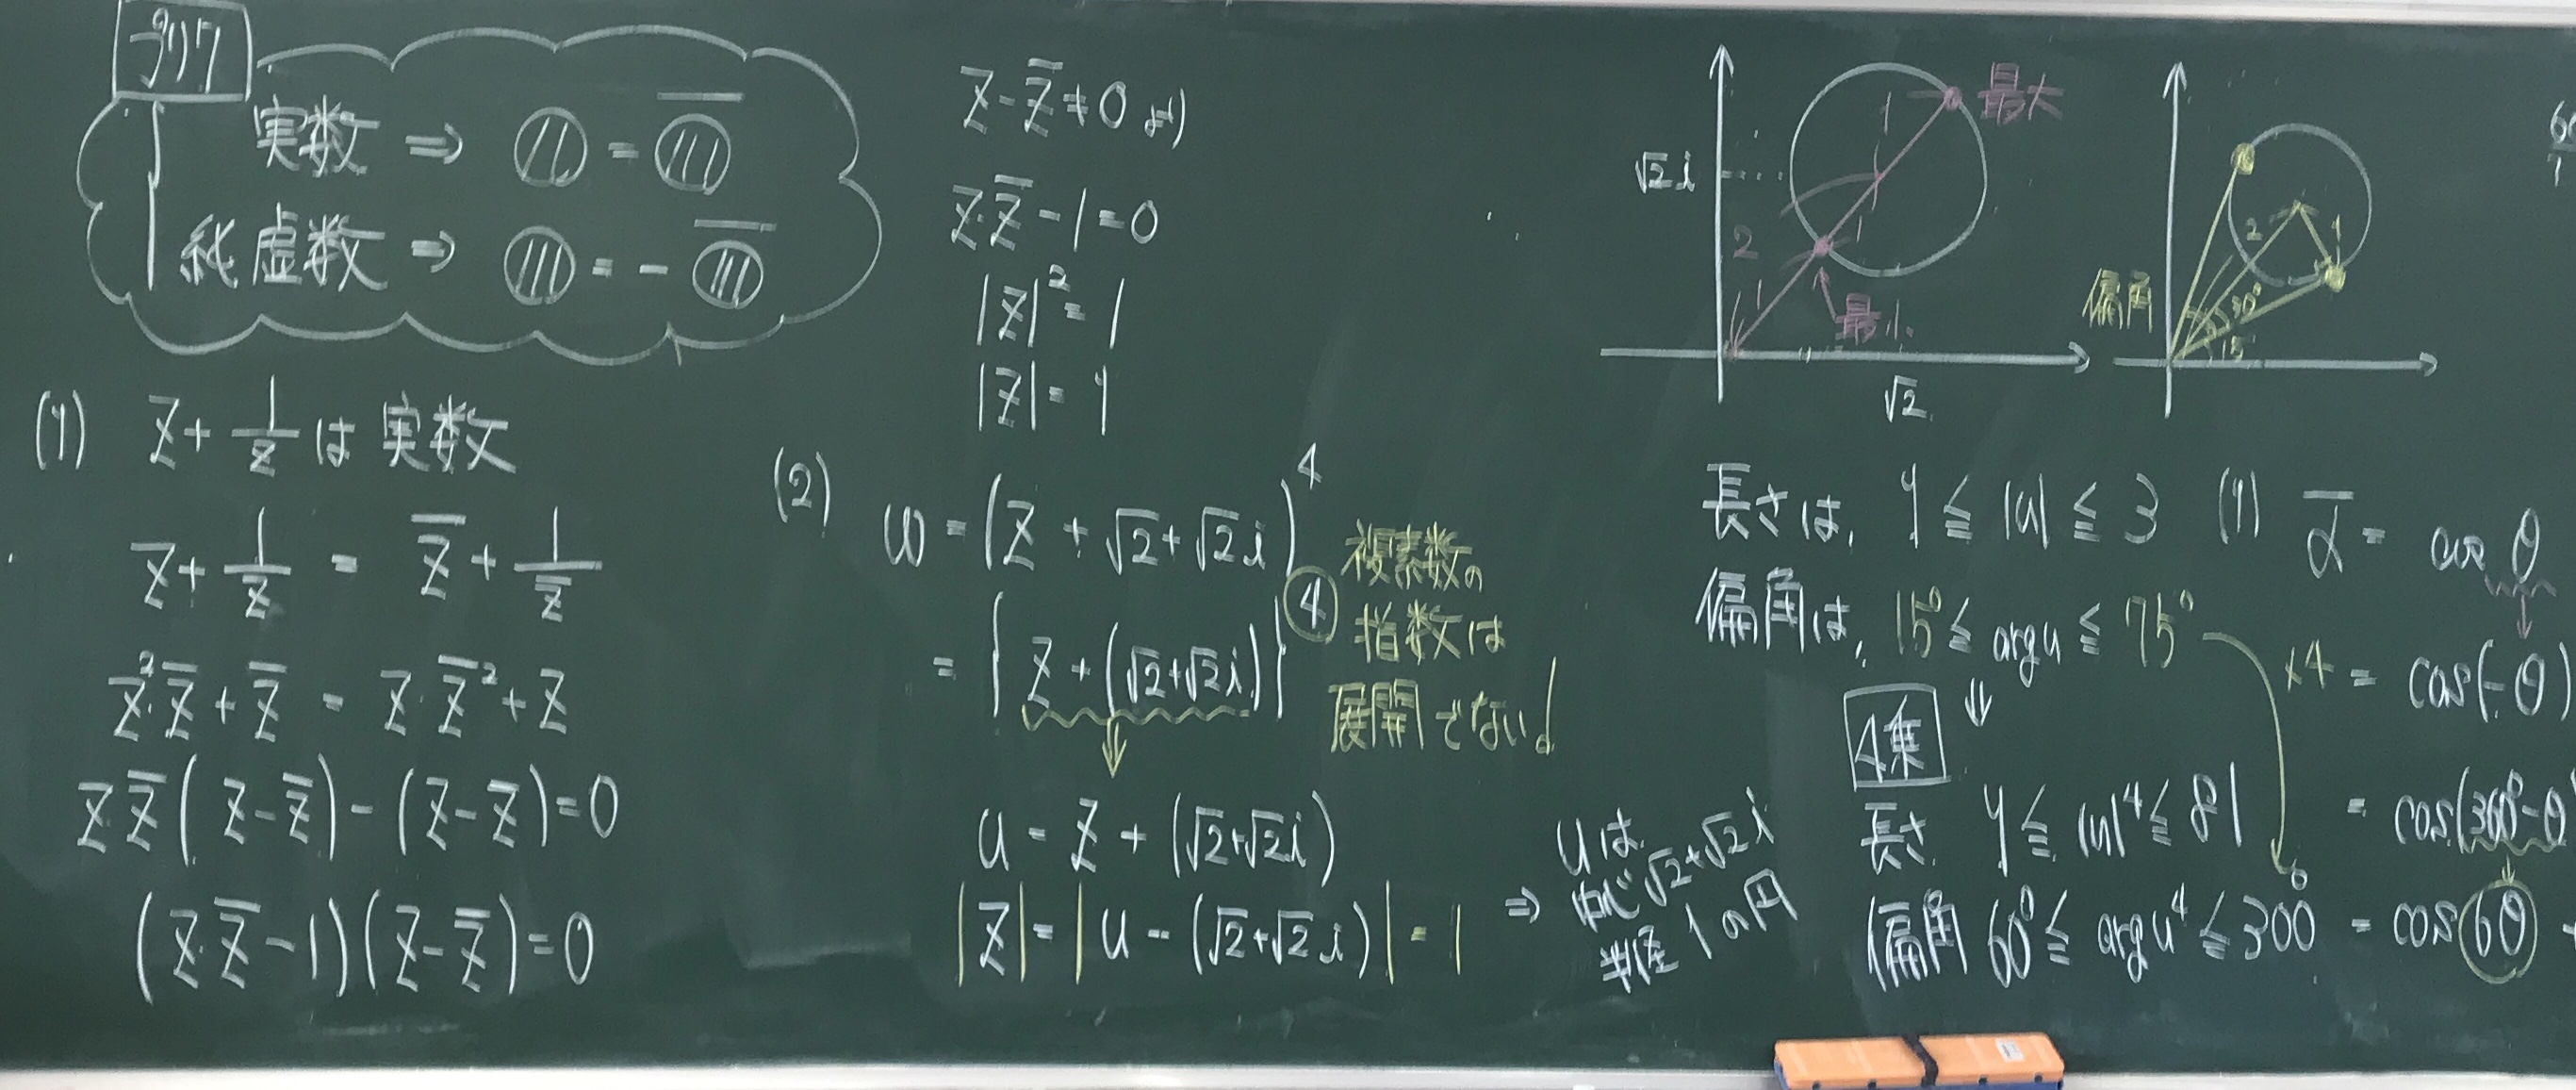 397
実数 ⇒ ⦸ = ⦸̅
純虚数 ⇒ ⦸ = - ⦸̅
(1) z + 1/z は 実数
z + 1/z = z̅ + 1/z̅
z²·z̅ + z̅ = z·z̅² + z
z z̅ ( z - z̅ ) - ( z - z̅ ) = 0
( z·z̅ - 1 )( z - z̅ ) = 0
z - z̅ ≠ 0 より
z·z̅ - 1 = 0
|z|² = 1
|z| = 1
(2) w = ( z + √2 + √2 i )⁴
= { z + ( √2 + √2 i ) }④
複素数の
指数は
展開でない!
u = z + ( √2 + √2 i )
|z| = | u - ( √2 + √2 i ) | = 1
⇒ uは
中心 √2 + √2 i
半径 1 の円
最大
√2 i
1
1
2
1
最小
√2
偏角
2
1
30°
15°
長さは, 1 ≦ |u| ≦ 3
偏角は, 15° ≦ arg u ≦ 75°
×4
4乗
長さ 1 ≦ |u|⁴ ≦ 81
偏角 60° ≦ arg u⁴ ≦ 300°
(1) α̅ = cos θ
= cos(-θ)
= cos(360°-θ
= cos 6θ